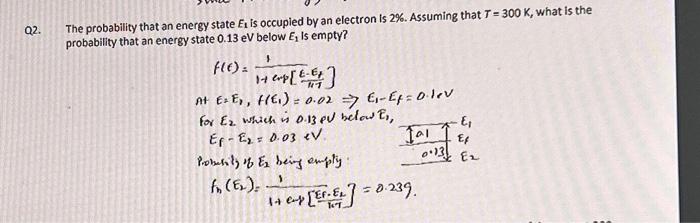 Q2. The probability that an energy state E₁ is occupied by an electron is 2%. Assuming that T = 300 K, what is the
probability that an energy state 0.13 eV below E₁ is empty?
f(E) = 1 / 1+ exp[E-Ef / kT]
At E=E₁, f(E₁) = 0.02 ⇒ E₁-Ef = 0.1eV
for E₂ which is 0.13 eV below E₁,
Ef - E₂ = 0.03 eV.
Probability of E₂ being empty:
fh(E₂) = 1 / 1+ exp[Ef-E₂ / kT] = 0.239.
E₁
0.1
Ef
0.13
E₂